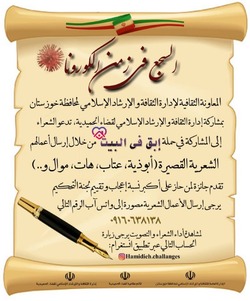 السجع في زمن الكورونا
المعاونة الثقافية لإدارة الثقافة والإرشاد الإسلامي لمحافظة خوزستان
بمشاركة إدارة الثقافة والإرشاد الإسلامي لقضاء الحميدية، تدعو الشعراء
إلى المشاركة في حملة إبق في البيت من خلال إرسال أعمالهم
الشعرية القصيرة (أبوذية، عتاب، هات، موال و..)
تقدم جائزة لمن حاز على أكبر نسبة إعجاب وتقييم لجنة التحكيم
يرجى إرسال الأعمال الشعرية مصورة إلى واتس آب الرقم التالي
٠٩١٦٠٦٣٨١٣٨
لمشاهدة أداء الشعراء والتصويت يرجى زيارة
الحساب التالي عبر تطبيق انستغرام:
@Hamidieh.challanges